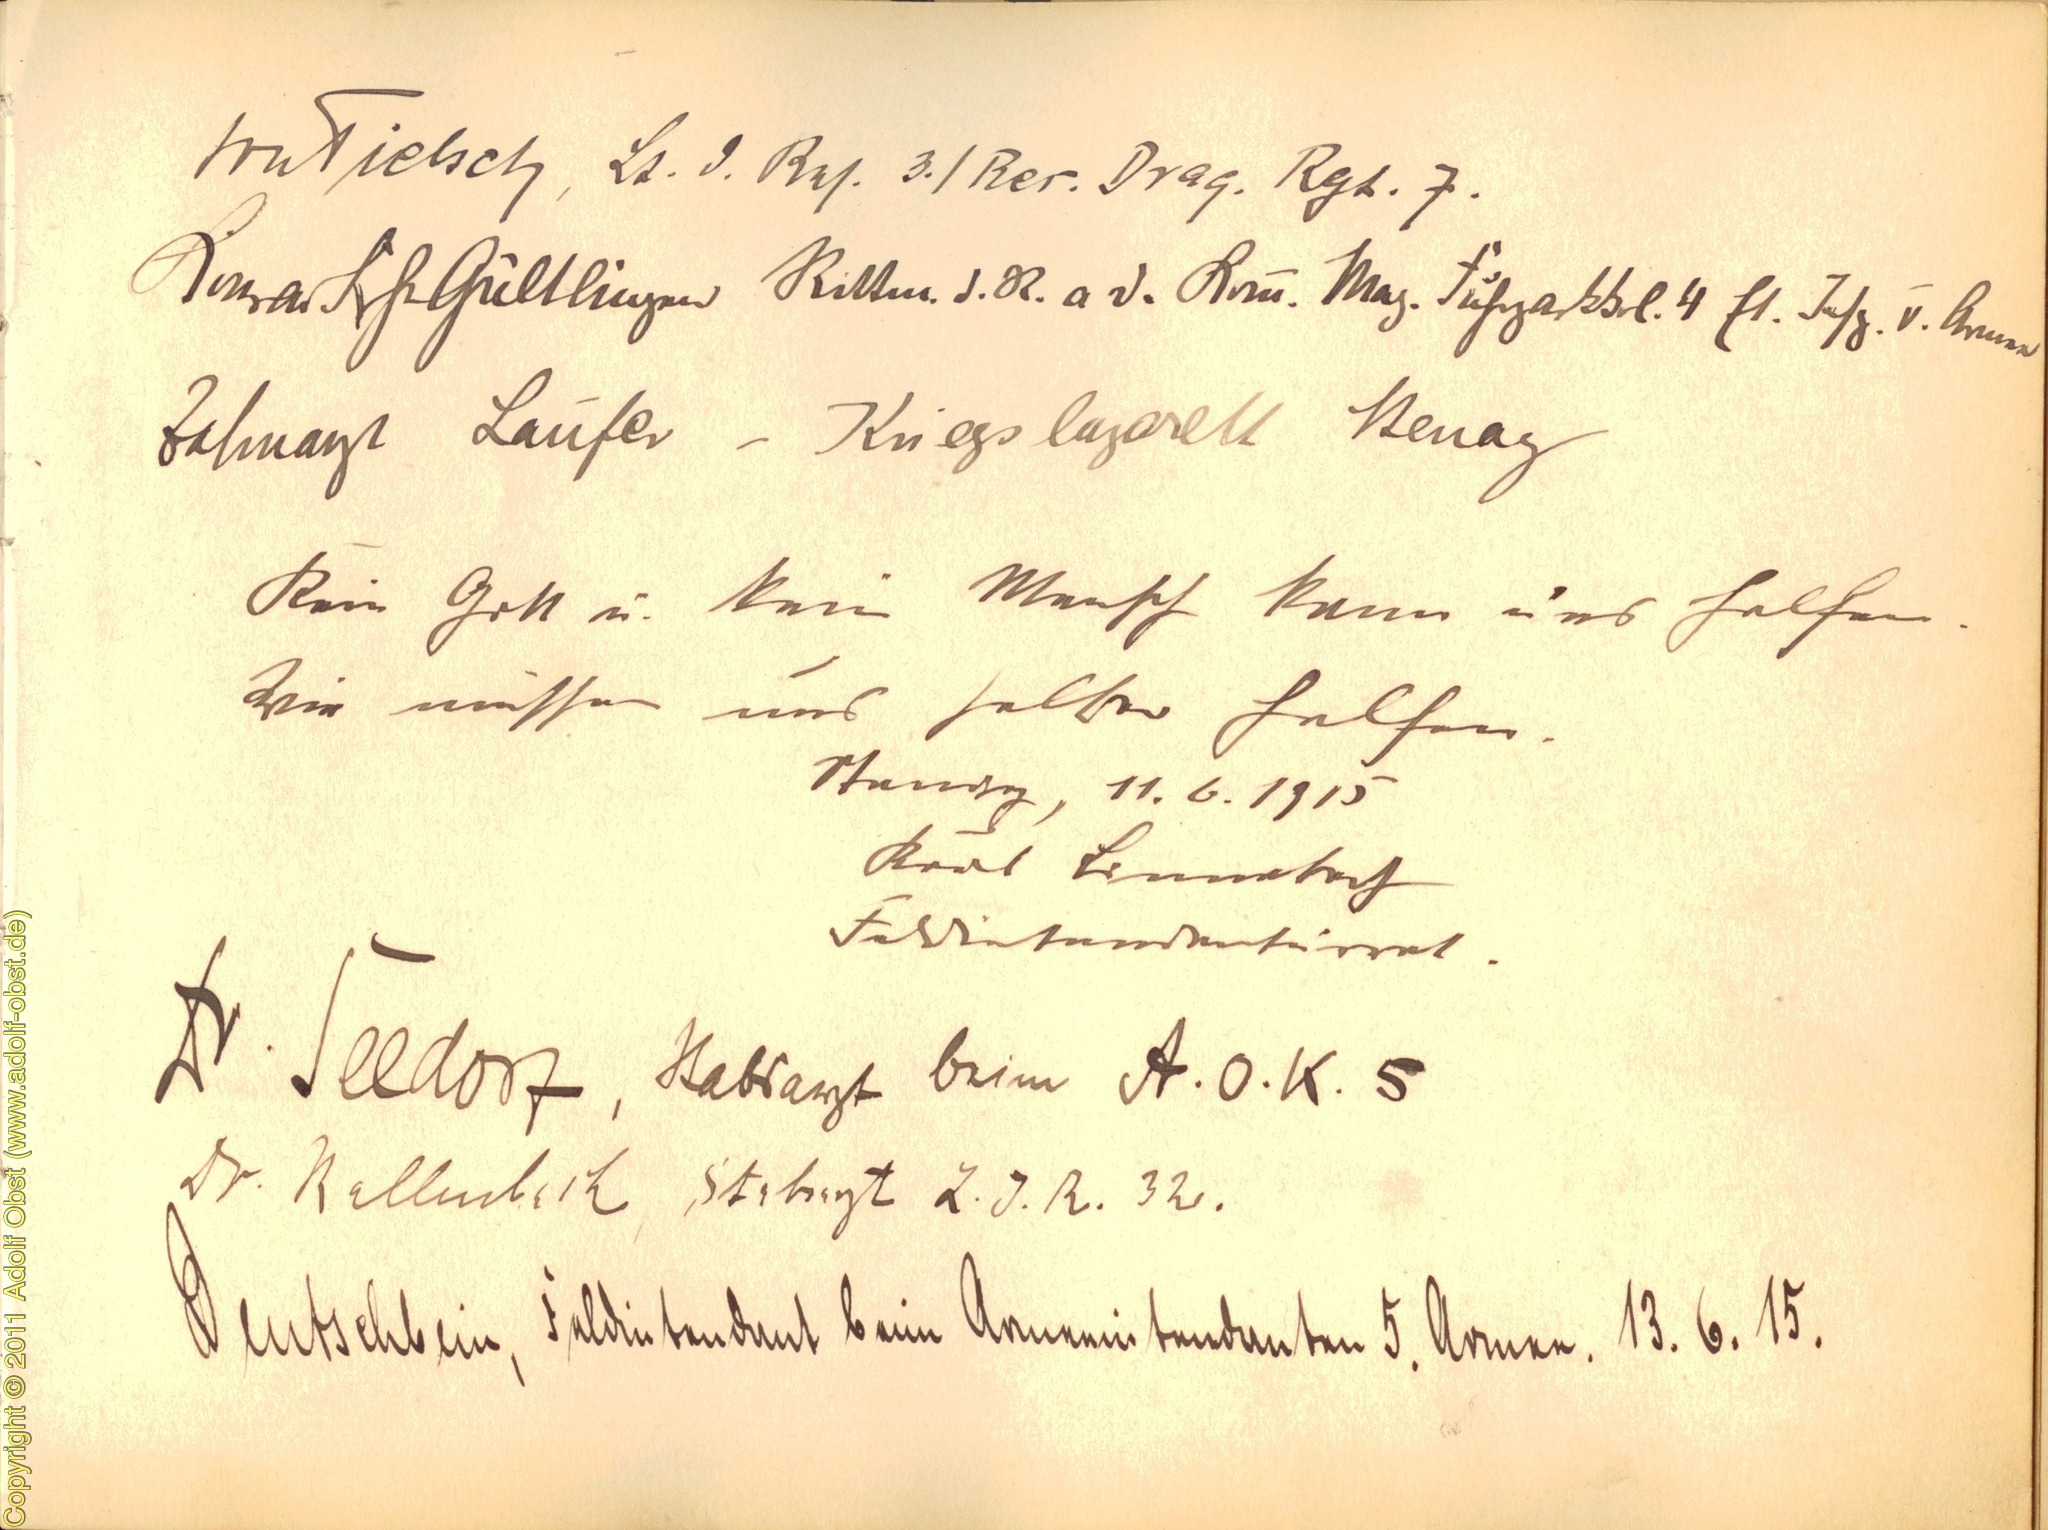 von Tielsch, Lt. d. Res. 3./Res. Drag. Rgt. 7.
Konrad Frh Gültlingen Rittm. d. R. a D. Kom. Mag. Fuhrparkkol. 4 Et. Insp. V. Armee
Zahnarzt Laufer – Kriegslazarett Stenay
Kein Gott u. kein Mensch kann uns helfen.
Wir müssen uns selber helfen.
Stenay, 11. 6. 1915
Karl Linnebach
Feldintendanturrat.
Dr. Seedorf, Stabsarzt beim A.O.K. 5
Dr. Kallenbach, Stabsarzt L. I. R. 32.
Deutschbein, Feldintendant beim Armeeintendanten 5. Armee. 13. 6. 15.
Copyright © 2011 Adolf Obst (www.adolf-obst.de)